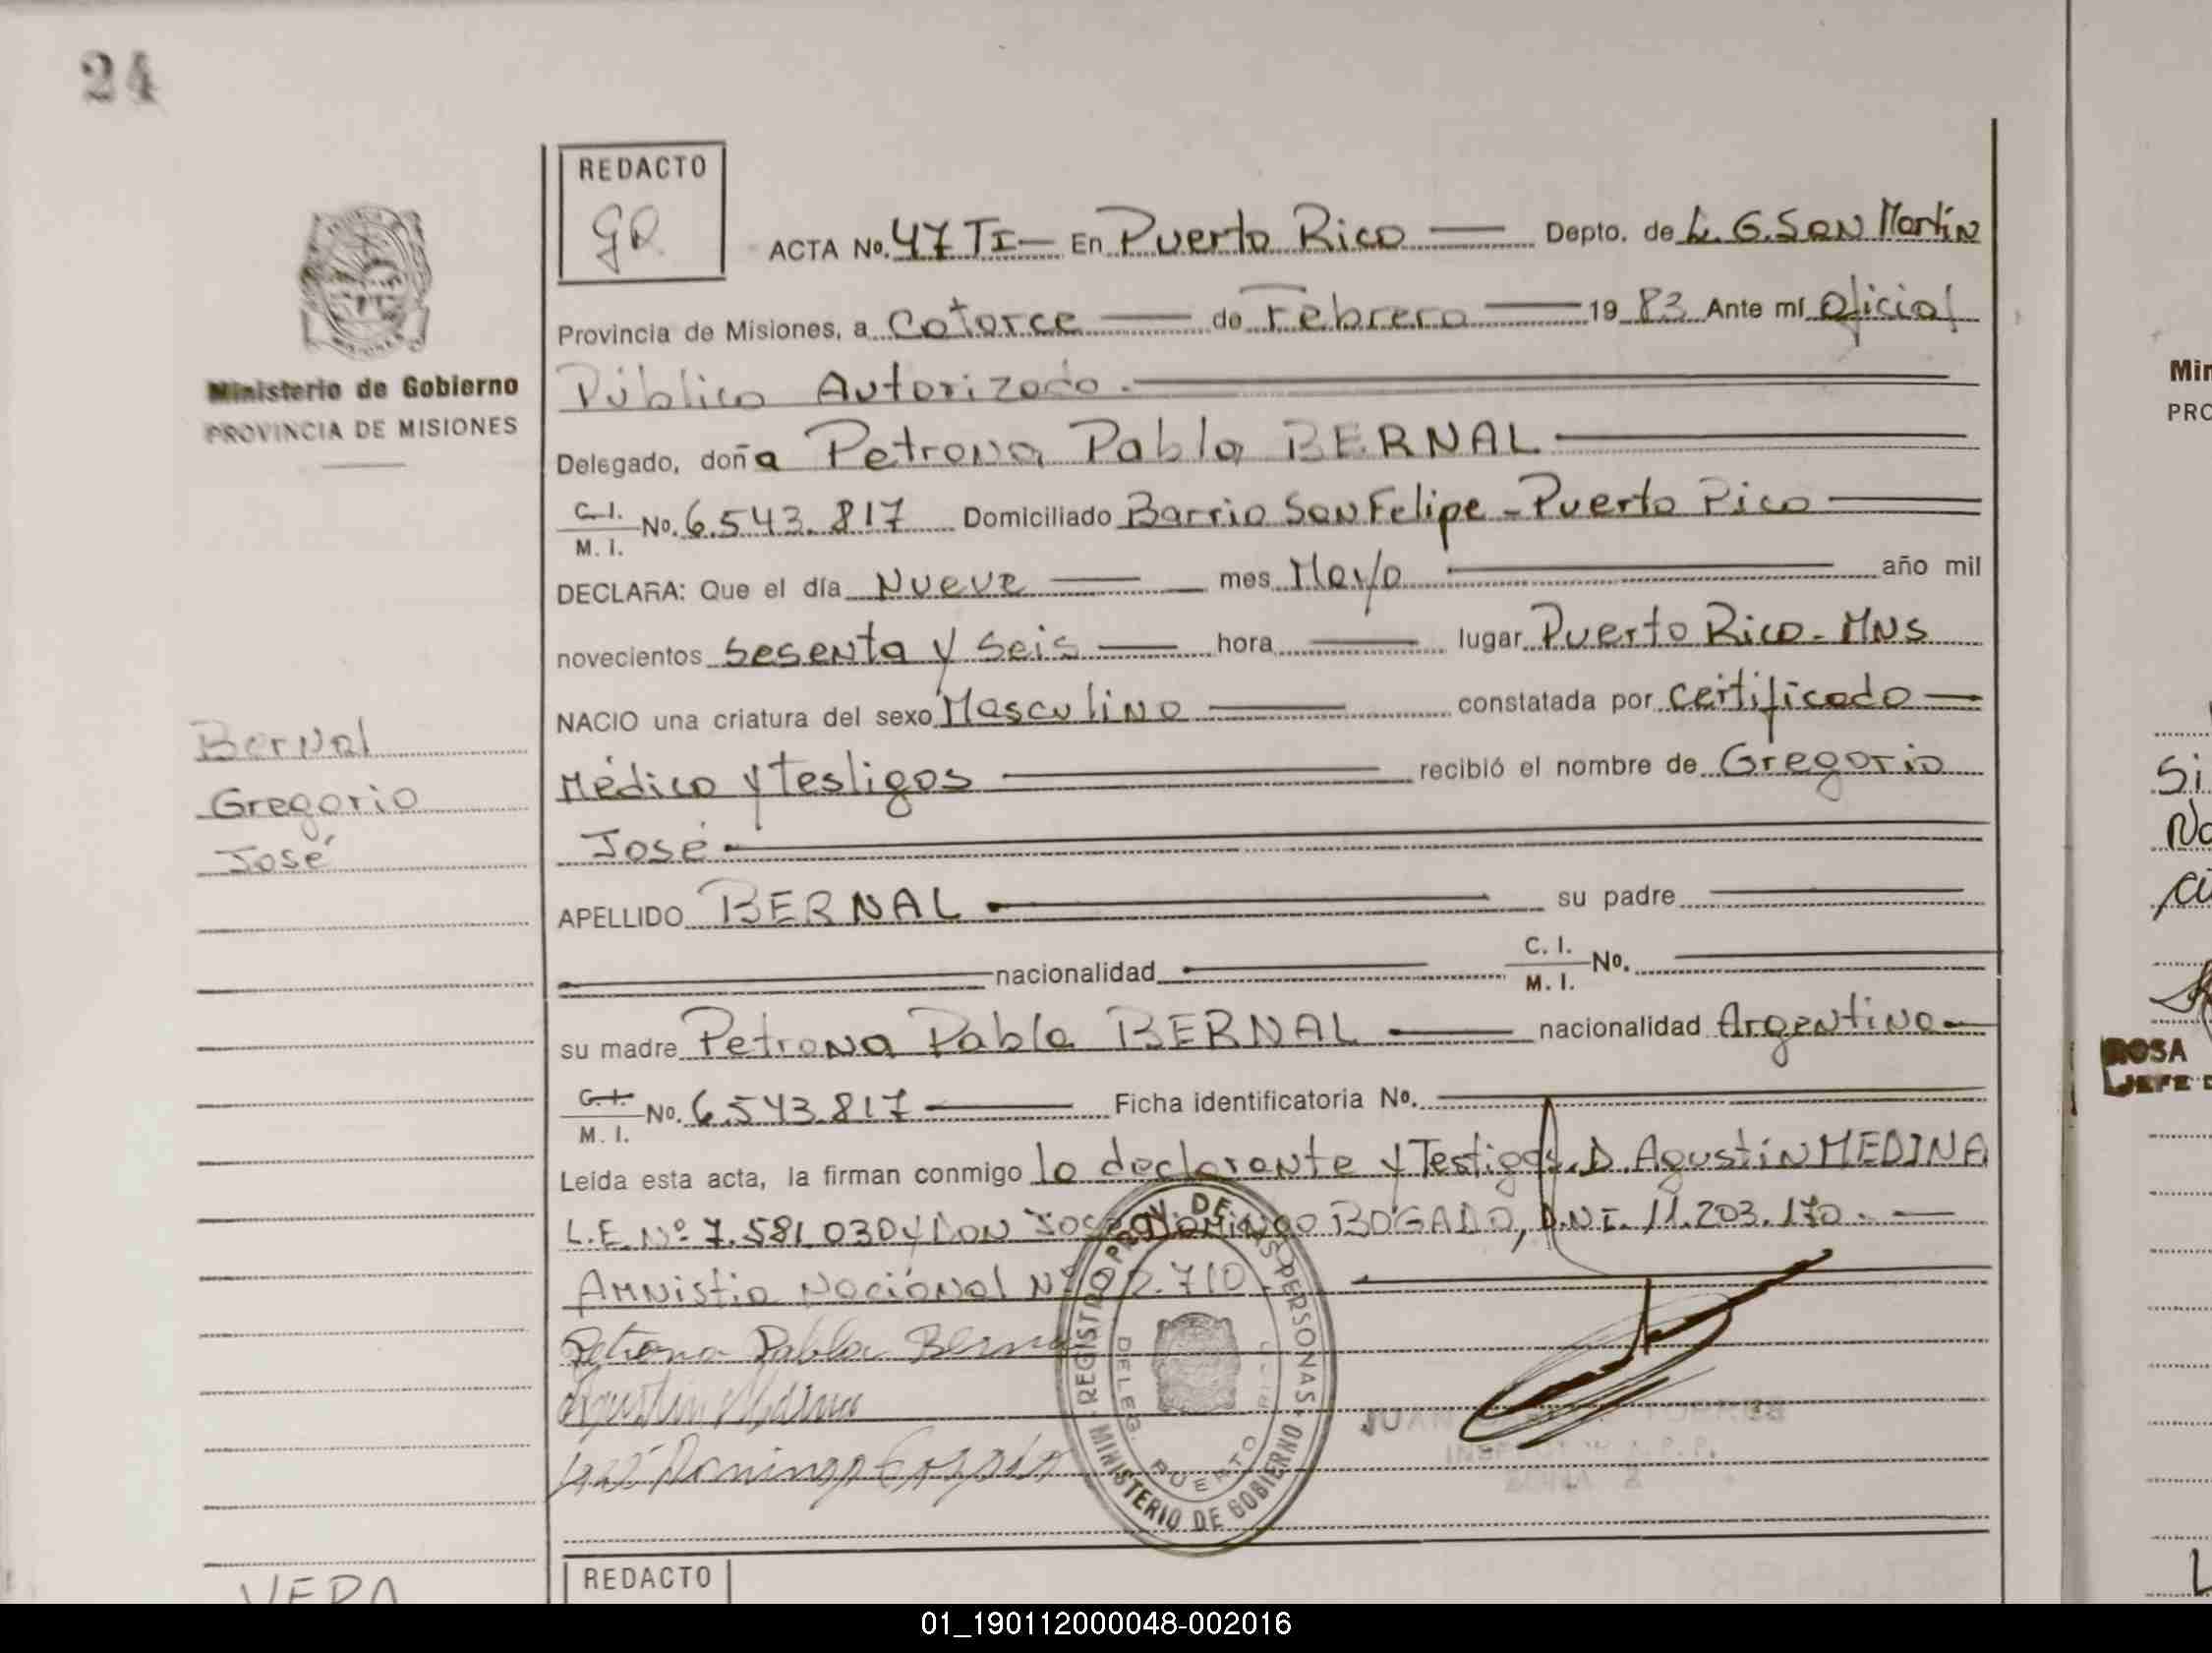 24
REDACTO
gR
ACTA No. 47 TI- En Puerto Rico Depto. de L. G. San Martín
Provincia de Misiones, a Catorce de Febrero 19 83 Ante mí Oficial
Público Autorizado.
Ministerio de Gobierno
PROVINCIA DE MISIONES
Delegado, doña Petrona Pabla BERNAL
C.I.
M.I. No. 6.543.817 Domiciliado Barrio San Felipe - Puerto Rico
DECLARA: Que el día Nueve mes Mayo año mil
novecientos sesenta y seis hora lugar Puerto Rico - MNS
NACIO una criatura del sexo Masculino constatada por certificado
Médico y testigos recibió el nombre de Gregorio
José
Bernal
Gregorio
José
APELLIDO BERNAL su padre
nacionalidad C.I.
M.I. No.
su madre Petrona Pabla BERNAL nacionalidad Argentina
C.I.
M.I. No. 6.543.817 Ficha identificatoria No.
Leida esta acta, la firman conmigo la declarante y Testigos. D. Agustín MEDINA
L.E. Nº 7.581.030 y Don José Domingo BOGADO, D.N.I. 11.203.170.-
Amnistia Nacional Nº 22.710.
Petrona Pabla Bernal
Agustin Medina
José Domingo Bogado
REGISTRO PROV. DE LAS PERSONAS
MINISTERIO DE GOBIERNO
DELEG. PUERTO RICO
JUAN
REDACTO
VERA
Min
PRO
Si
No
ci
ROSA
JEFE D
01_190112000048-002016